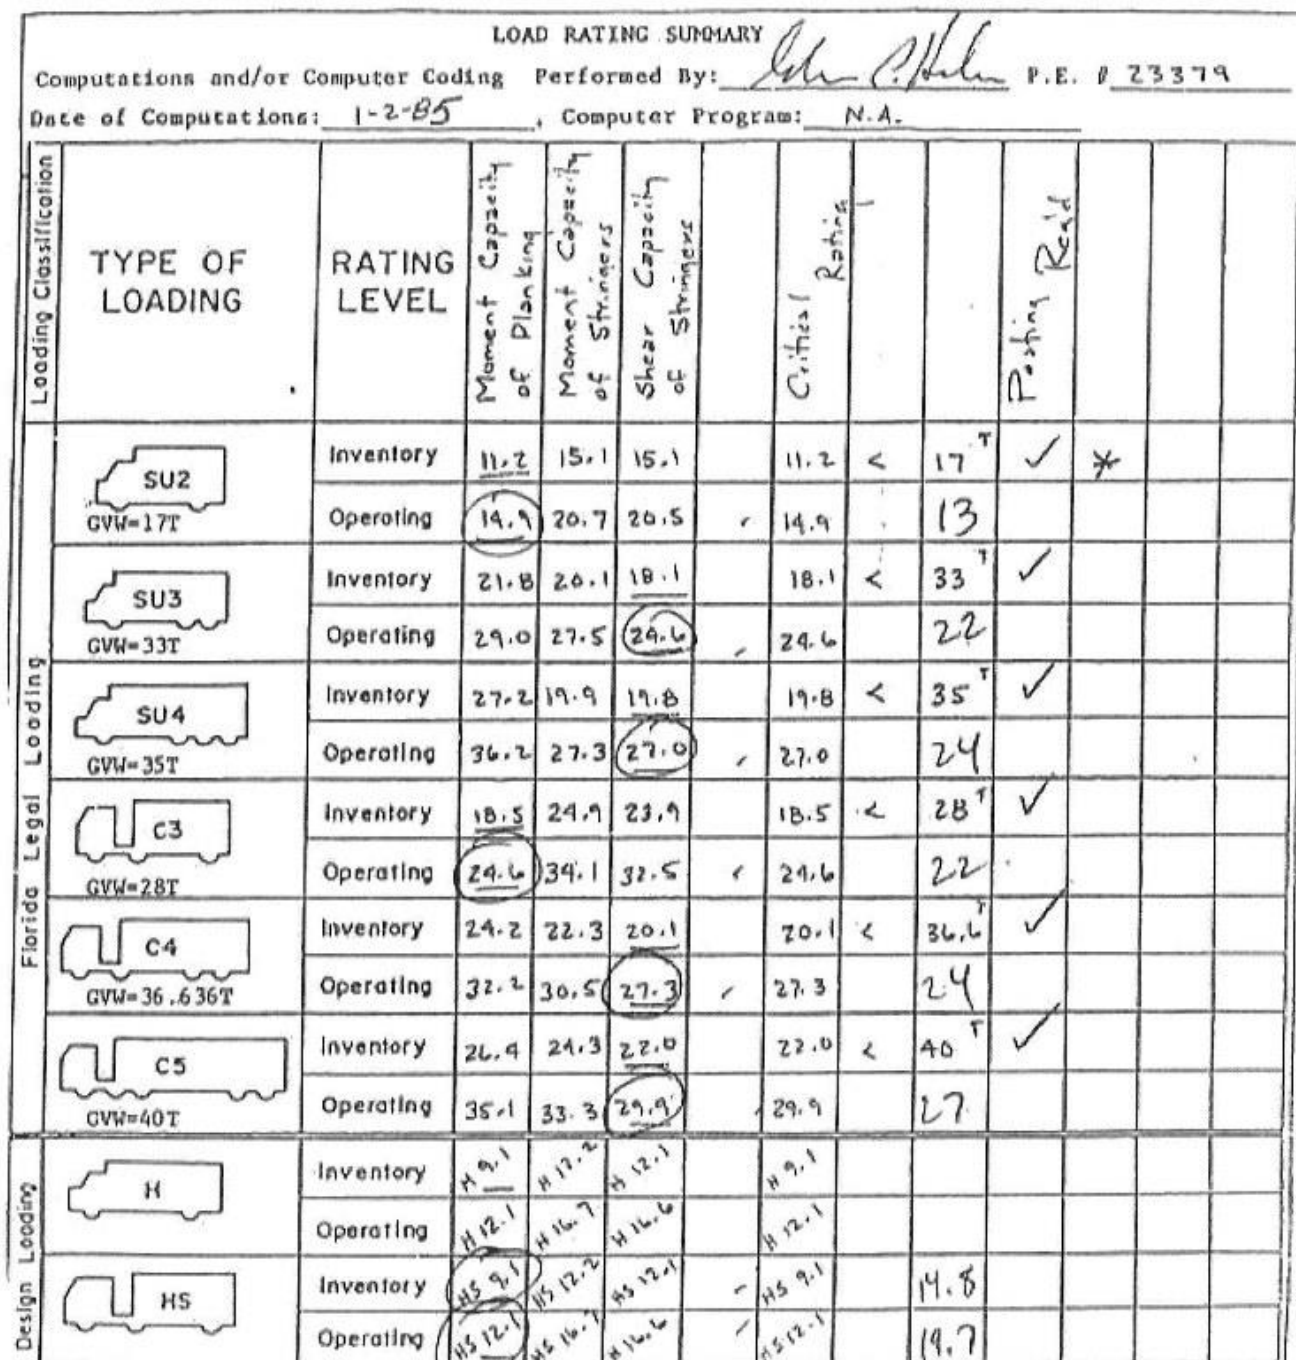 LOAD RATING SUMMARY
Computations and/or Computer Coding Performed By: P.E. # 23379
Date of Computations: 1-2-85, Computer Program: N.A.
Loading Classification
TYPE OF LOADING
RATING LEVEL
Moment Capacity of Planking
Moment Capacity of Stringers
Shear Capacity of Stringers
Critical Rating
Posting Req'd
Florida Legal Loading
SU2
GVW=17T
Inventory 11.2 15.1 15.1 11.2 < 17 T ✓ *
Operating 14.9 20.7 20.5 14.9 13
SU3
GVW=33T
Inventory 21.8 20.1 18.1 18.1 < 33 T ✓
Operating 29.0 27.5 24.6 24.6 22
SU4
GVW=35T
Inventory 27.2 19.9 19.8 19.8 < 35 T ✓
Operating 36.2 27.3 27.0 27.0 24
C3
GVW=28T
Inventory 18.5 24.9 23.9 18.5 < 28 T ✓
Operating 24.6 34.1 32.5 24.6 22
C4
GVW=36.636T
Inventory 24.2 22.3 20.1 20.1 < 36.6 T ✓
Operating 32.2 30.5 27.3 27.3 24
C5
GVW=40T
Inventory 26.4 24.3 22.0 22.0 < 40 T ✓
Operating 35.1 33.3 29.9 29.9 27
Design Loading
H
Inventory H 9.1 H 12.2 H 12.1 H 9.1
Operating H 12.1 H 16.7 H 16.6 H 12.1
HS
Inventory HS 9.1 HS 12.2 HS 12.1 HS 9.1 14.8
Operating HS 12.1 HS 16.7 H 16.6 HS 12.1 19.7